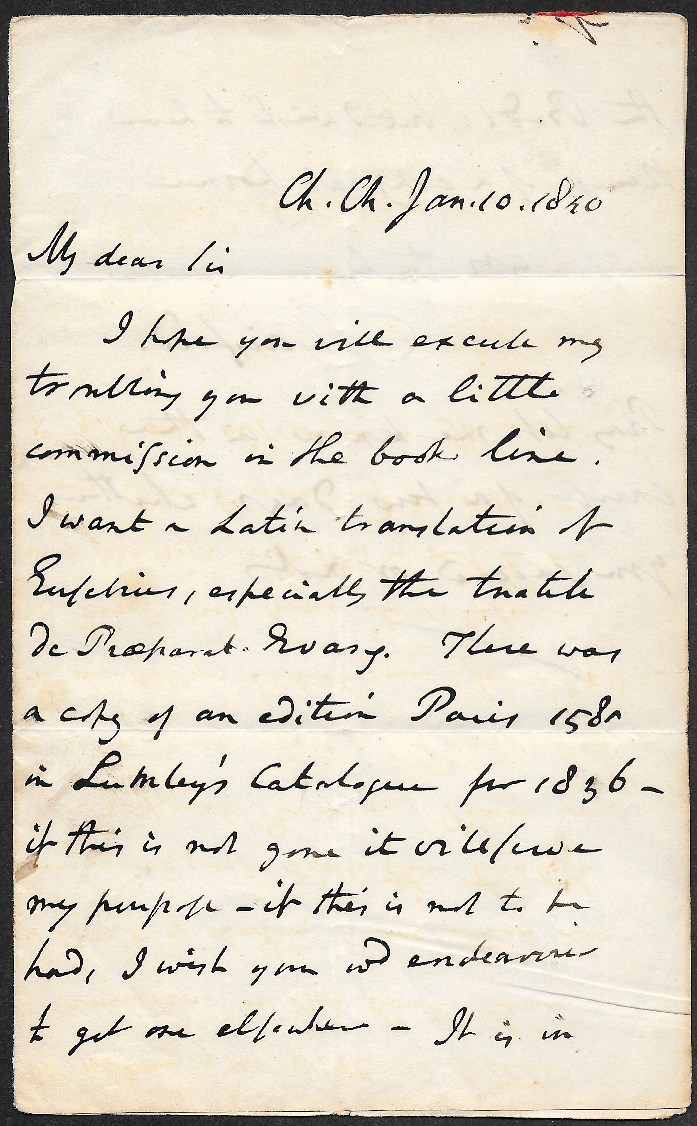 Ch. Ch. Jan. 10. 1840
My dear Sir
I hope you will excuse my
troubling you with a little
commission in the book line.
I want a Latin translation of
Eusebius, especially the treatise
De Præparat. Evang. There was
a copy of an edition Paris 1581
in Lumley's Catalogue for 1836 -
if this is not gone it will serve
my purpose - if this is not to be
had, I wish you wd endeavour
to get one elsewhere - It is in